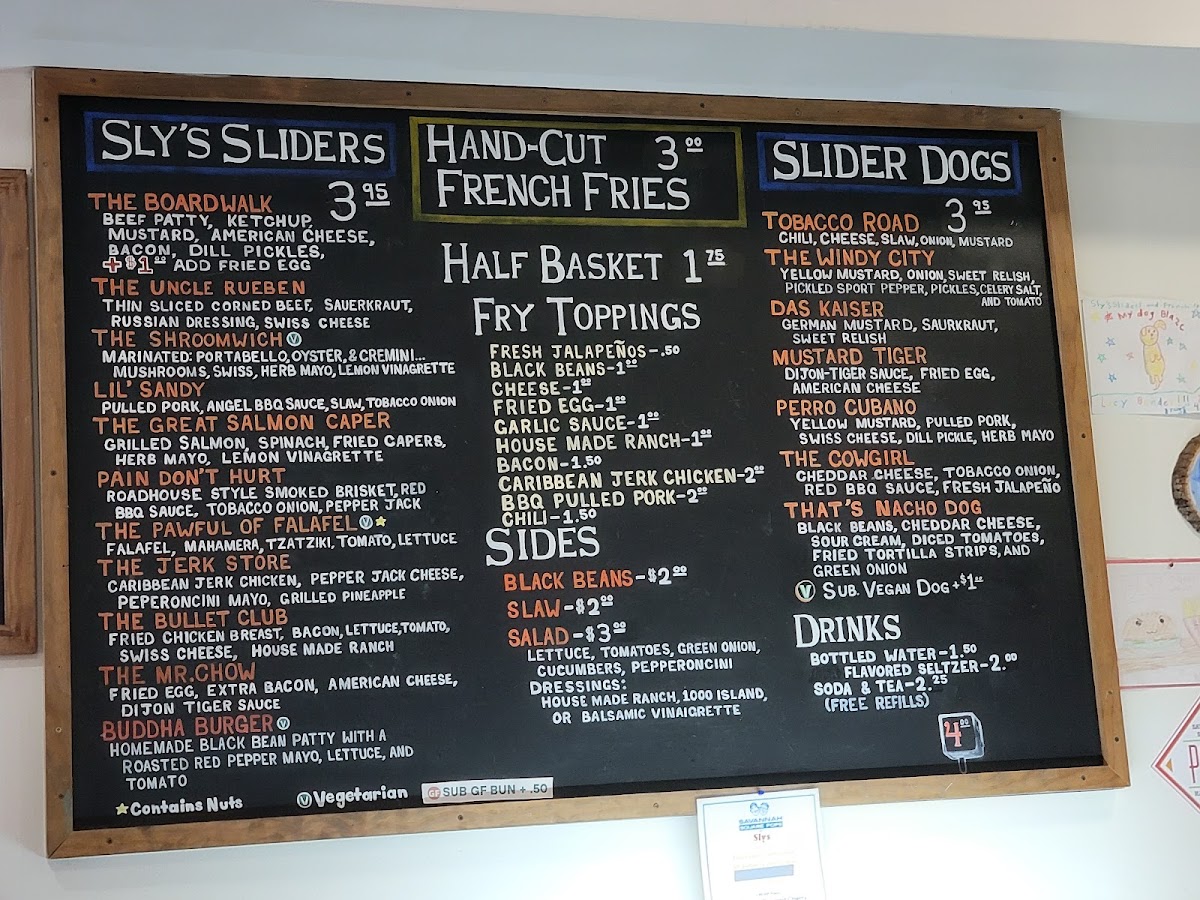 SLY'S SLIDERS
THE BOARDWALK 3 95
BEEF PATTY, KETCHUP,
MUSTARD, AMERICAN CHEESE,
BACON, DILL PICKLES,
+$1 00 ADD FRIED EGG
THE UNCLE RUEBEN
THIN SLICED CORNED BEEF, SAUERKRAUT,
RUSSIAN DRESSING, SWISS CHEESE
THE SHROOMWICH V
MARINATED: PORTABELLO, OYSTER, & CREMINI...
MUSHROOMS, SWISS, HERB MAYO, LEMON VINAGRETTE
LIL' SANDY
PULLED PORK, ANGEL BBQ SAUCE, SLAW, TOBACCO ONION
THE GREAT SALMON CAPER
GRILLED SALMON, SPINACH, FRIED CAPERS,
HERB MAYO, LEMON VINAGRETTE
PAIN DON'T HURT
ROADHOUSE STYLE SMOKED BRISKET, RED
BBQ SAUCE, TOBACCO ONION, PEPPER JACK
THE PAWFUL OF FALAFEL V
FALAFEL, MAHAMERA, TZATZIKI, TOMATO, LETTUCE
THE JERK STORE
CARIBBEAN JERK CHICKEN, PEPPER JACK CHEESE,
PEPERONCINI MAYO, GRILLED PINEAPPLE
THE BULLET CLUB
FRIED CHICKEN BREAST, BACON, LETTUCE, TOMATO,
SWISS CHEESE, HOUSE MADE RANCH
THE MR. CHOW
FRIED EGG, EXTRA BACON, AMERICAN CHEESE,
DIJON TIGER SAUCE
BUDDHA BURGER V
HOMEMADE BLACK BEAN PATTY WITH A
ROASTED RED PEPPER MAYO, LETTUCE, AND
TOMATO
Contains Nuts
V Vegetarian
GF SUB GF BUN + .50
HAND-CUT 3 00
FRENCH FRIES
HALF BASKET 1 75
FRY TOPPINGS
FRESH JALAPEÑOS-.50
BLACK BEANS-1 00
CHEESE-1 00
FRIED EGG-1 00
GARLIC SAUCE-1 00
HOUSE MADE RANCH-1 00
BACON-1.50
CARIBBEAN JERK CHICKEN-2 00
BBQ PULLED PORK-2 00
CHILI-1.50
SIDES
BLACK BEANS-$2 00
SLAW-$2 00
SALAD-$3 00
LETTUCE, TOMATOES, GREEN ONION,
CUCUMBERS, PEPPERONCINI
DRESSINGS:
HOUSE MADE RANCH, 1000 ISLAND,
OR BALSAMIC VINAIGRETTE
SLIDER DOGS
TOBACCO ROAD 3 95
CHILI, CHEESE, SLAW, ONION, MUSTARD
THE WINDY CITY
YELLOW MUSTARD, ONION, SWEET RELISH,
PICKLED SPORT PEPPER, PICKLES, CELERY SALT,
AND TOMATO
DAS KAISER
GERMAN MUSTARD, SAURKRAUT,
SWEET RELISH
MUSTARD TIGER
DIJON-TIGER SAUCE, FRIED EGG,
AMERICAN CHEESE
PERRO CUBANO
YELLOW MUSTARD, PULLED PORK,
SWISS CHEESE, DILL PICKLE, HERB MAYO
THE COWGIRL
CHEDDAR CHEESE, TOBACCO ONION,
RED BBQ SAUCE, FRESH JALAPEÑO
THAT'S NACHO DOG
BLACK BEANS, CHEDDAR CHEESE,
SOUR CREAM, DICED TOMATOES,
FRIED TORTILLA STRIPS, AND
GREEN ONION
V SUB VEGAN DOG +$1 00
DRINKS
BOTTLED WATER-1.50
FLAVORED SELTZER-2.00
SODA & TEA-2.25
(FREE REFILLS)
4 00
My dog
SAVANNAH
SQUARE POPS
Slys